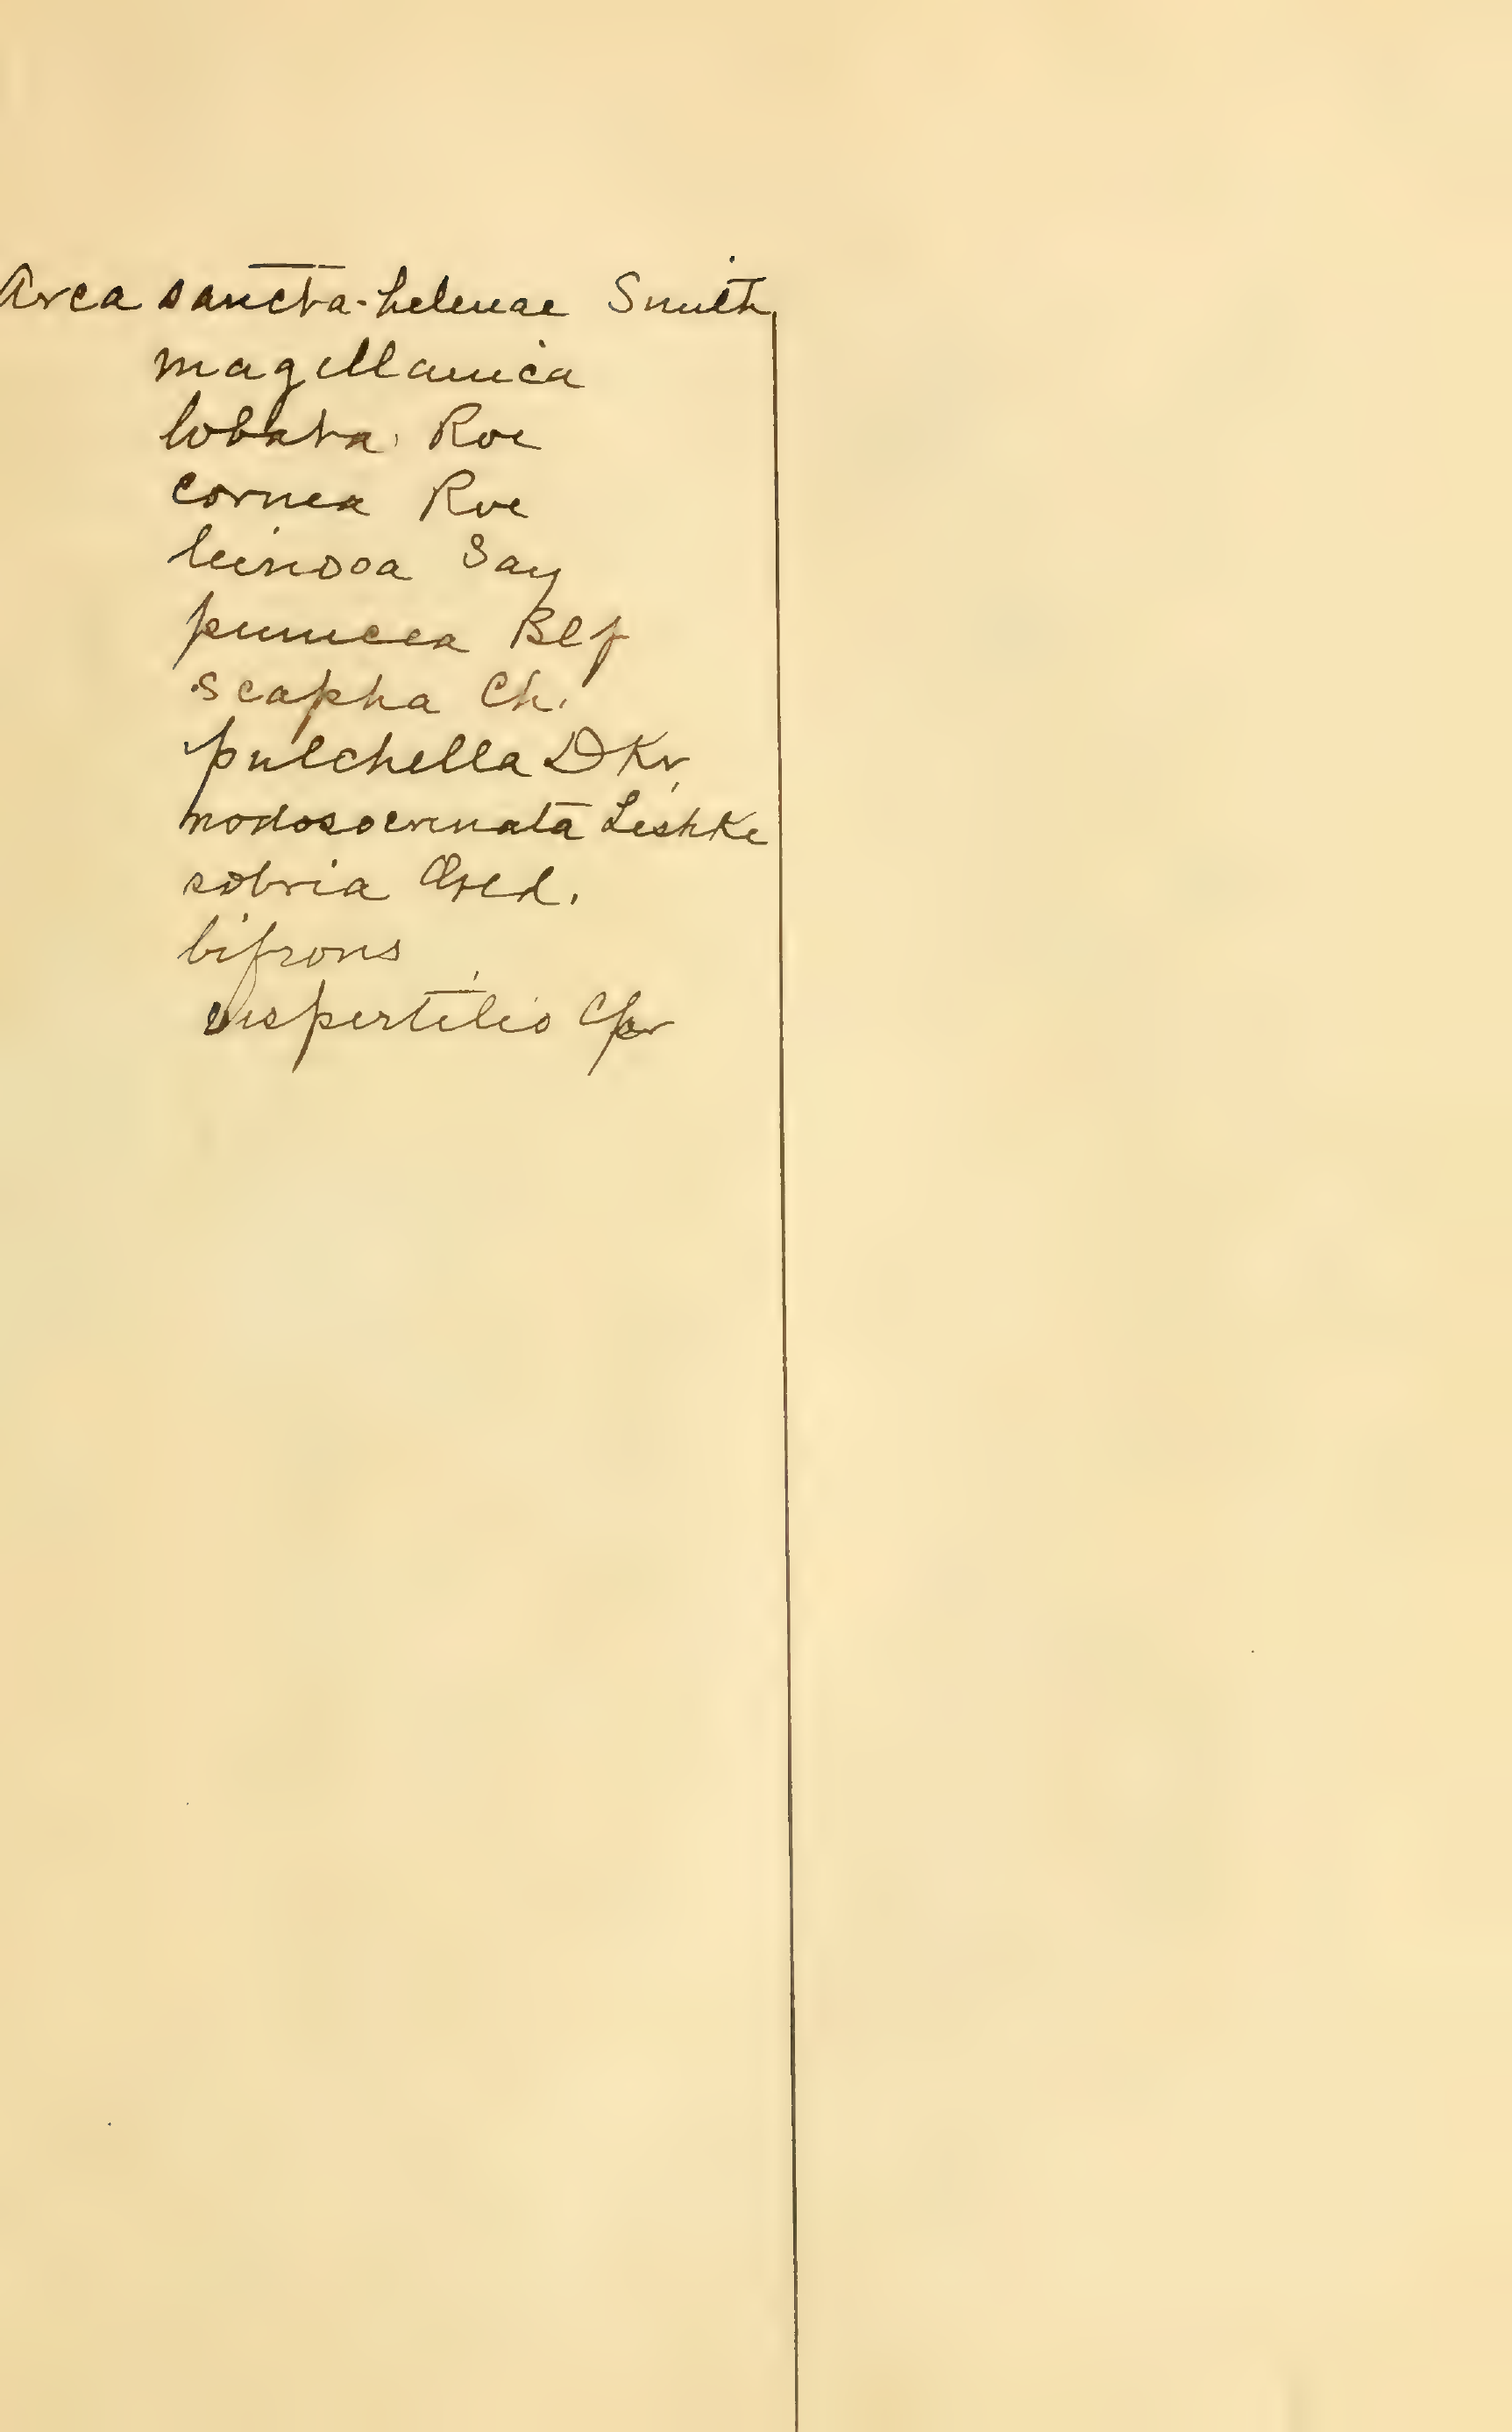 Arca sancta-helenae Smith
magellanica
lobata Rve
cornea Rve
limosa Say
punicea Blf
scapha Ch.
pulchella Dkr
nodosocrenata Lischke
sobria Ored.
bifrons
vespertilio Cpr